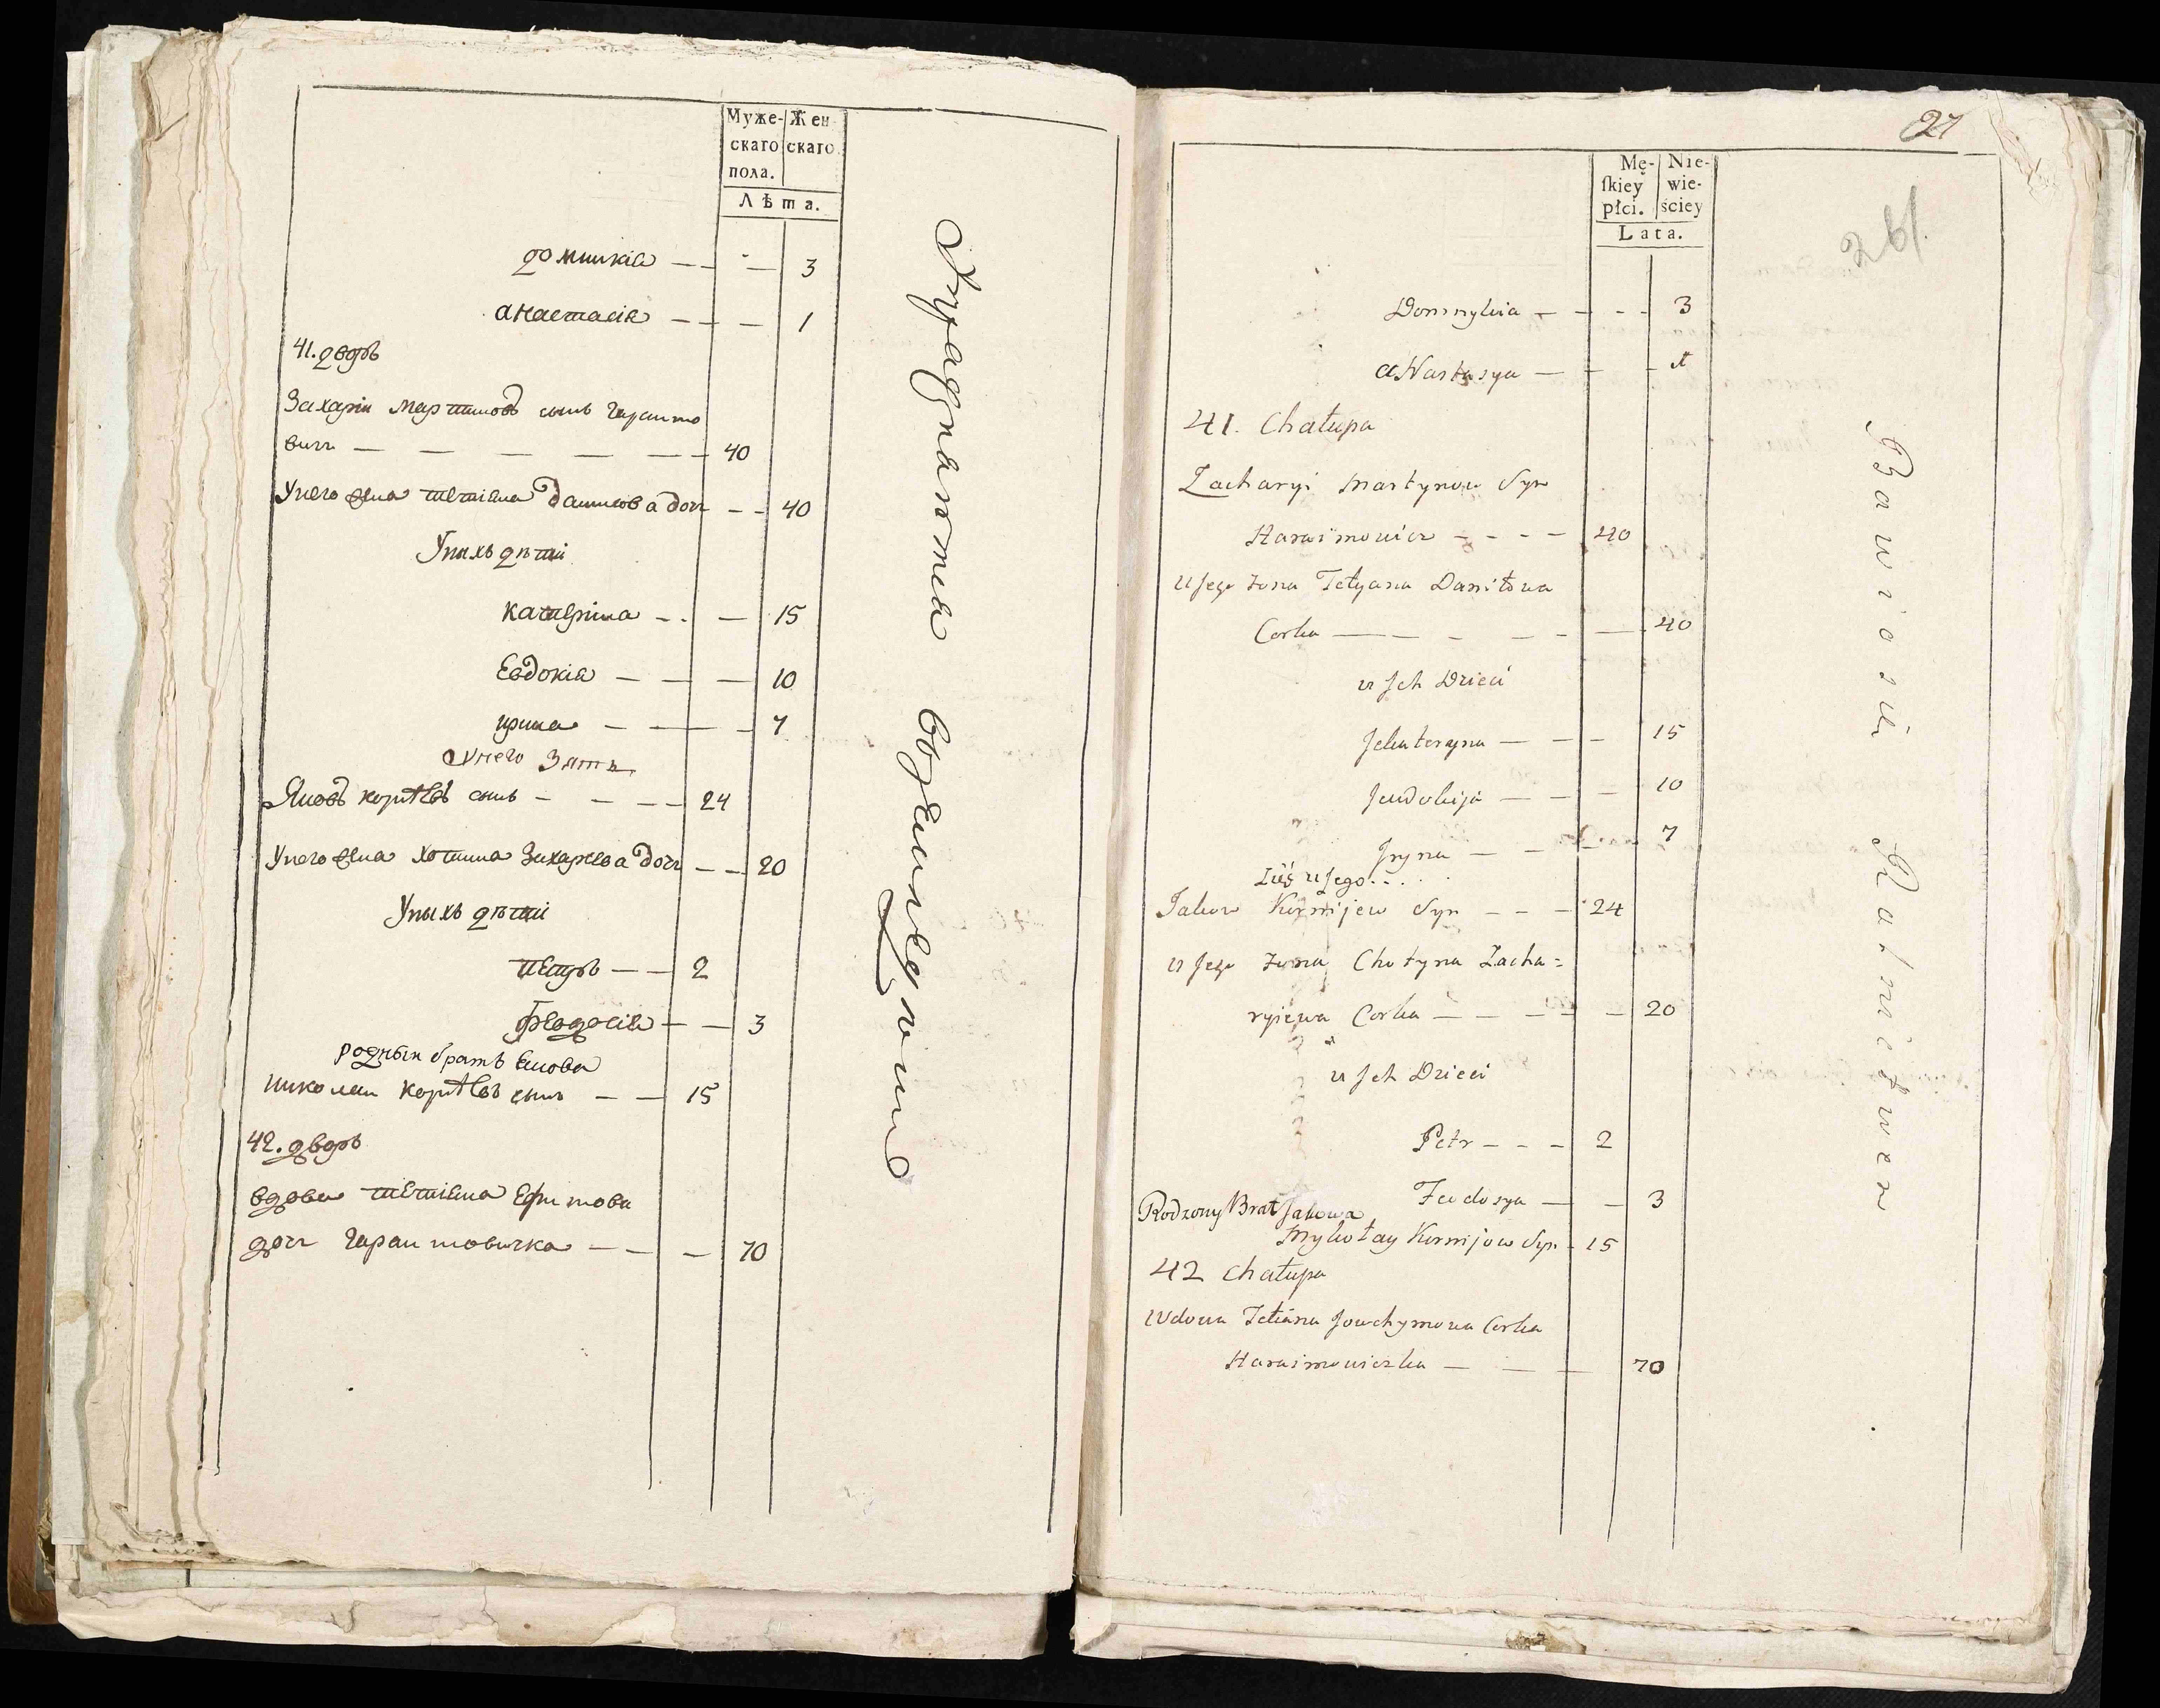 Муже-
скаго
пола.
Жен
скаго.
Лѣта.
домникія — — - — 3
анастасія — — — 1
41. дворъ
Захарiи мартиновъ сынъ Гараимо
вичъ — — — — — — 40
У него жена тетіяна данилова дочь — — 40
У нихъ дѣти
катерина — - — 15
Евдокія — — — 10
ирина — — — 7
У него Зять
Яковъ корнѣевъ сынъ — — — — 24
У него жена хотина Захарьева дочь — — 20
У ныхъ дѣти
петръ — — 2
Феодосія — — 3
родный братъ якова
николаи корнѣевъ сынъ — — 15
42. дворъ
вдова тетіяна Ефимова
дочь Гараимовичка — — — 70
27
261.
Mę-
ſkiey
płci.
Nie-
wie-
ściey
Lata.
Domnykia — — - - 3
aNastasya — — - 1
41. Chałupa
Zacharyi Martynow Syn
Haraimowicz - - - — 40
u Jego żona Tetyana Daniłowa
Corka — — - — - — 40
u Jch Dzieci
Jekateryna — — — 15
Jewdokija — — — 10
Jryna — — — 7
Zięć u Jego . . .
Jakow Kornijew Syn — — — 24
u Jego żona Chotyna Zacha=
ryiewa Corka — — — — — 20
u Jch Dzieci
Petr — — — 2
Feodosya — — 3
Rodzony Brat Jakowa
Mykołay Kornijow Syn - 15
42 Chałupa
Wdowa Tetiana Jowchymowa Corka
Haraimowiczka — — — 70